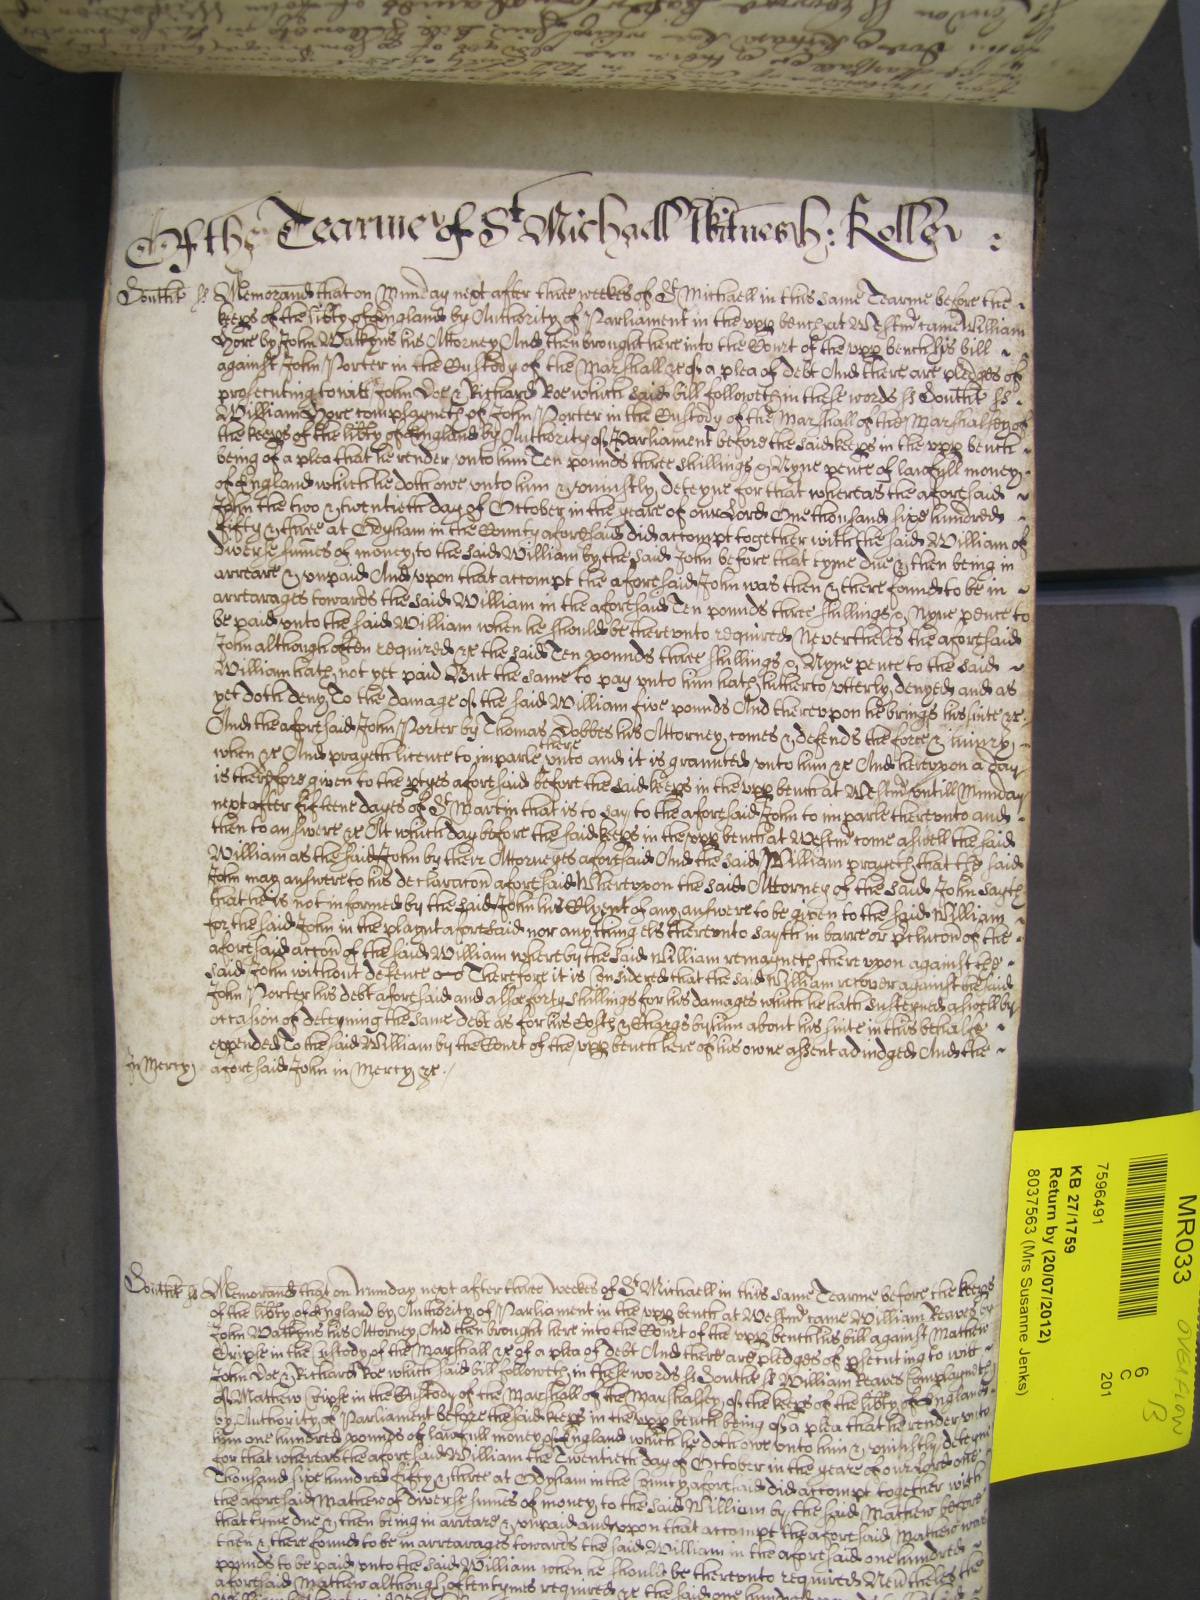 Of the Tearme of St Michaell Witnesseth: Rolle
Southt ss Memorand that on Munday next after three weekes of St Michaell in this same Tearme before the
keeps of the libty of England by Authority of Parliament in the upp bench at Westmr came William
Hore by John Watkyns his Attorney And then brought here into the Court of the upp bench his bill
against John Porter in the Custody of the Marshall &c of a plea of debt And there are pledges of
prosecuting to witt John Doe & Richard Roe which said bill followeth in these words ss Southt ss
William Hore complayneth of John Porter in the Custody of the Marshall of the Marshalsey of
the keeps of the libty of England by Authority of Parliament before the said keeps in the upp bench
being of a plea that he render unto him Ten pounds three shillings & Nyne pence of lawfull money
of England which he doth owe unto him & uniustly deteyne for that whereas the aforesaid
John the two & twentieth day of October in the yeare of our Lord One thousand sixe hundred
fifty & three at Odyham in the County aforesaid did accompt together with the said William of
diverse sumes of money to the said William by the said John before that tyme due & then being in
arreare & unpaid And upon that accompt the aforesaid John was then & there found to be in
arrearages towards the said William in the aforesaid Ten pounds three shillings & Nyne pence to
be paid unto the said William when he should be thereunto required Nevertheles the aforesaid
John although often required &c the said Ten pounds three shillings & Nyne pence to the said
William hath not yet paid But the same to pay unto him hath hitherto utterly denyed and as
yet doth deny To the damage of the said William five pounds And thereupon he brings his suite &c
And the aforesaid John Porter by Thomas Dobbes his Attorney comes & defends the force & iniury
when &c And prayeth licence to imparle there unto and it is graunted unto him &c And hereupon a day
is therefore given to the ptyes aforesaid before the said keeps in the upp bench at Westmr untill Munday
next after fifteene dayes of St Martin that is to say to the aforesaid John to imparle thereunto and
then to answere &c At which day before the said keeps in the upp bench at Westmr come aswell the said
William as the said John by their Attorneyes aforesaid And the said William prayeth that the said
John may answere to his declaracon aforesaid Whereupon the said Attorney of the said John sayth
that he is not informed by the said John his Clyent of any answere to be given to the said William
for the said John in the playnt aforesaid nor any thing els thereunto sayth in barre or pclucon of the
aforesaid accon of the said William whereby the said William remayneth there upon against the
said John without defence &c Therefore it is Considered that the said William recover against the said
John Porter his debt aforesaid and alsoe forty shillings for his damages which he hath susteyned aswell by
occasion of deteyning the same debt as for his Costs & Chargs by him about his suite in this behalfe
expended To the said William by the Court of the upp bench here of his owne assent adiudged And the
In Mercy aforesaid John in Mercy &c
Southt ss Memorand that on Munday next after three weekes of St Michaell in this same Tearme before the keeps
of the libty of England by Authority of Parliament in the upp bench at Westmr came William Reaves by
John Watkyns his Attorney And then brought here into the Court of the upp bench his bill against Mathew
Cripse in the custody of the Marshall &c of a plea of debt And there are pledges of psecuting to witt
John Doe & Richard Roe which said bill followeth in these words ss Southt ss William Reaves Complayneth
of Mathew Cripse in the Custody of the Marshall of the Marshalsey of the keeps of the libty of England
by Authority of Parliament before the said keeps in the upp bench being of a plea that he render unto
him one hundred pounds of lawfull money of England which he doth owe unto him & uniustly deteyne
for that whereas the aforesaid William the Twentieth day of October in the yeare of our Lord one
Thousand sixe hundred fifty & three at Odyham in the County aforesaid did accompt together with
the aforesaid Mathew of diverse sumes of money to the said William by the said Mathew before
that tyme due & then being in arreare & unpaid and upon that accompt the aforesaid Mathew was
then & there found to be in arrearages towards the said William in the aforesaid one hundred
pounds to be paid unto the said William when he should be thereunto required Nevtheles the
aforesaid Mathew although oftentymes required &c the said one hundred
MR033
7596491
KB 27/1759
Return by (20/07/2012)
8037563 (Mrs Susanne Jenks)
6
C
201